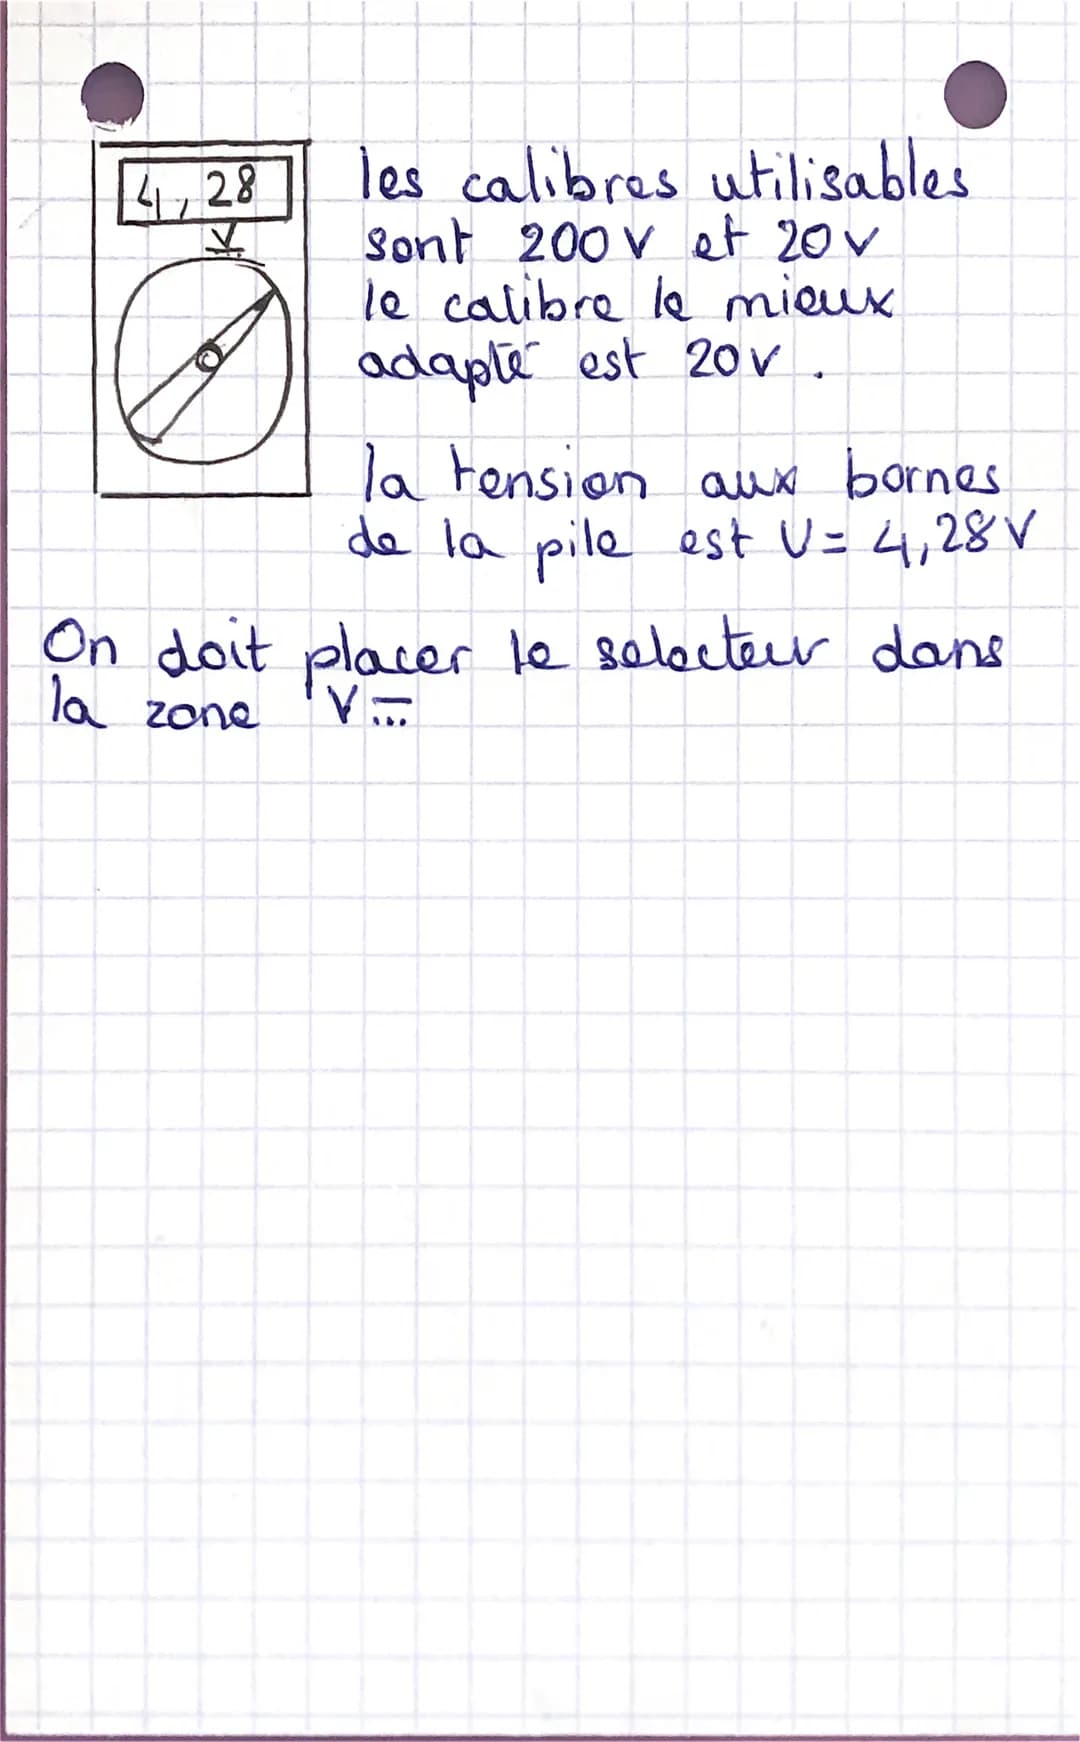 4,28
V⎓
les calibres utilisables
sont 200V et 20V
le calibre le mieux
adapté est 20V.
la tension aux bornes
de la pile est U= 4,28V
On doit placer le selecteur dans
la zone V⎓